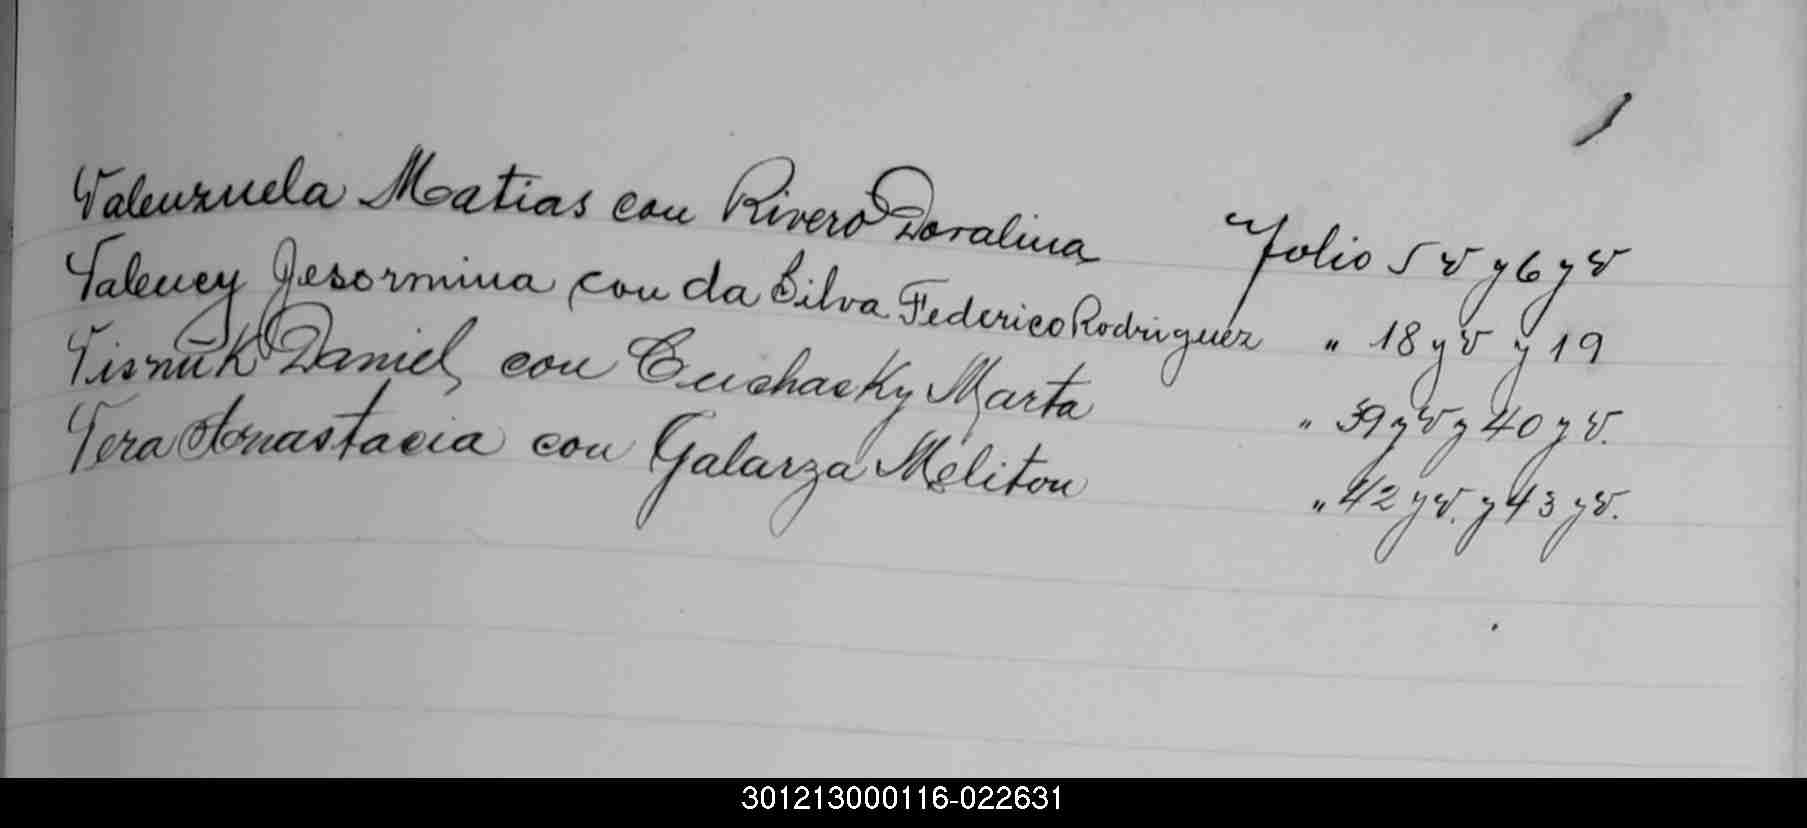 Valenzuela Matias con Rivero Doralina Folio 5 v y 6 y v
Valency Jesormina con da Silva Federico Rodriguez " 18 y v y 19
Visnuk Daniel con Euchacky Marta " 39 y v y 40 y v.
Vera Anastacia con Galarza Meliton " 42 y v. y 43 y v.
301213000116-022631